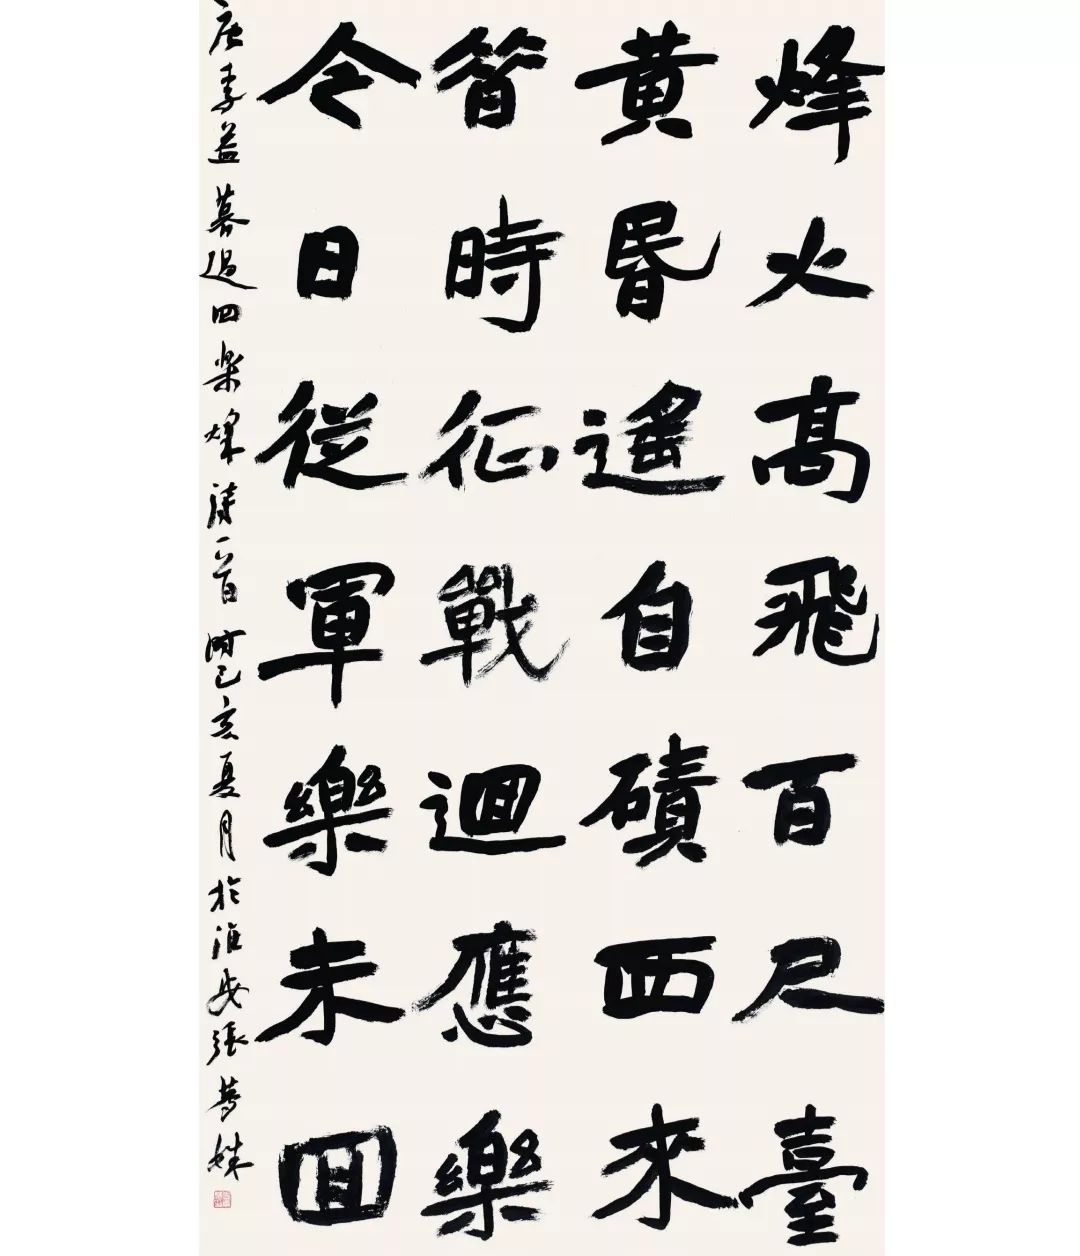 烽火高飛百尺臺
黃昬遙自磧西來
昔時征戰迴應樂
今日從軍樂未回
唐李益暮過回樂烽詩一首時己亥夏月於淮安張夢姝